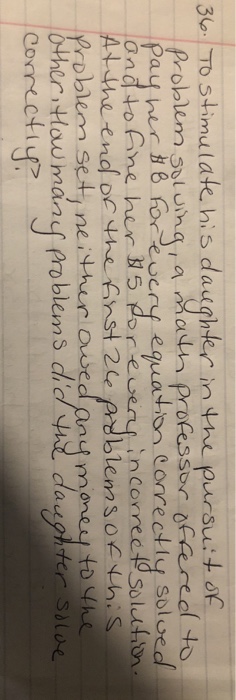 36. To stimulate his daughter in the pursuit of
problem solving, a math professor offered to
pay her $8 for every equation correctly solved
and to fine her $5 for every incorrect solution.
At the end of the first 26 problems of this
problem set, neither owed any money to the
other. How many problems did the daughter solve
correctly?